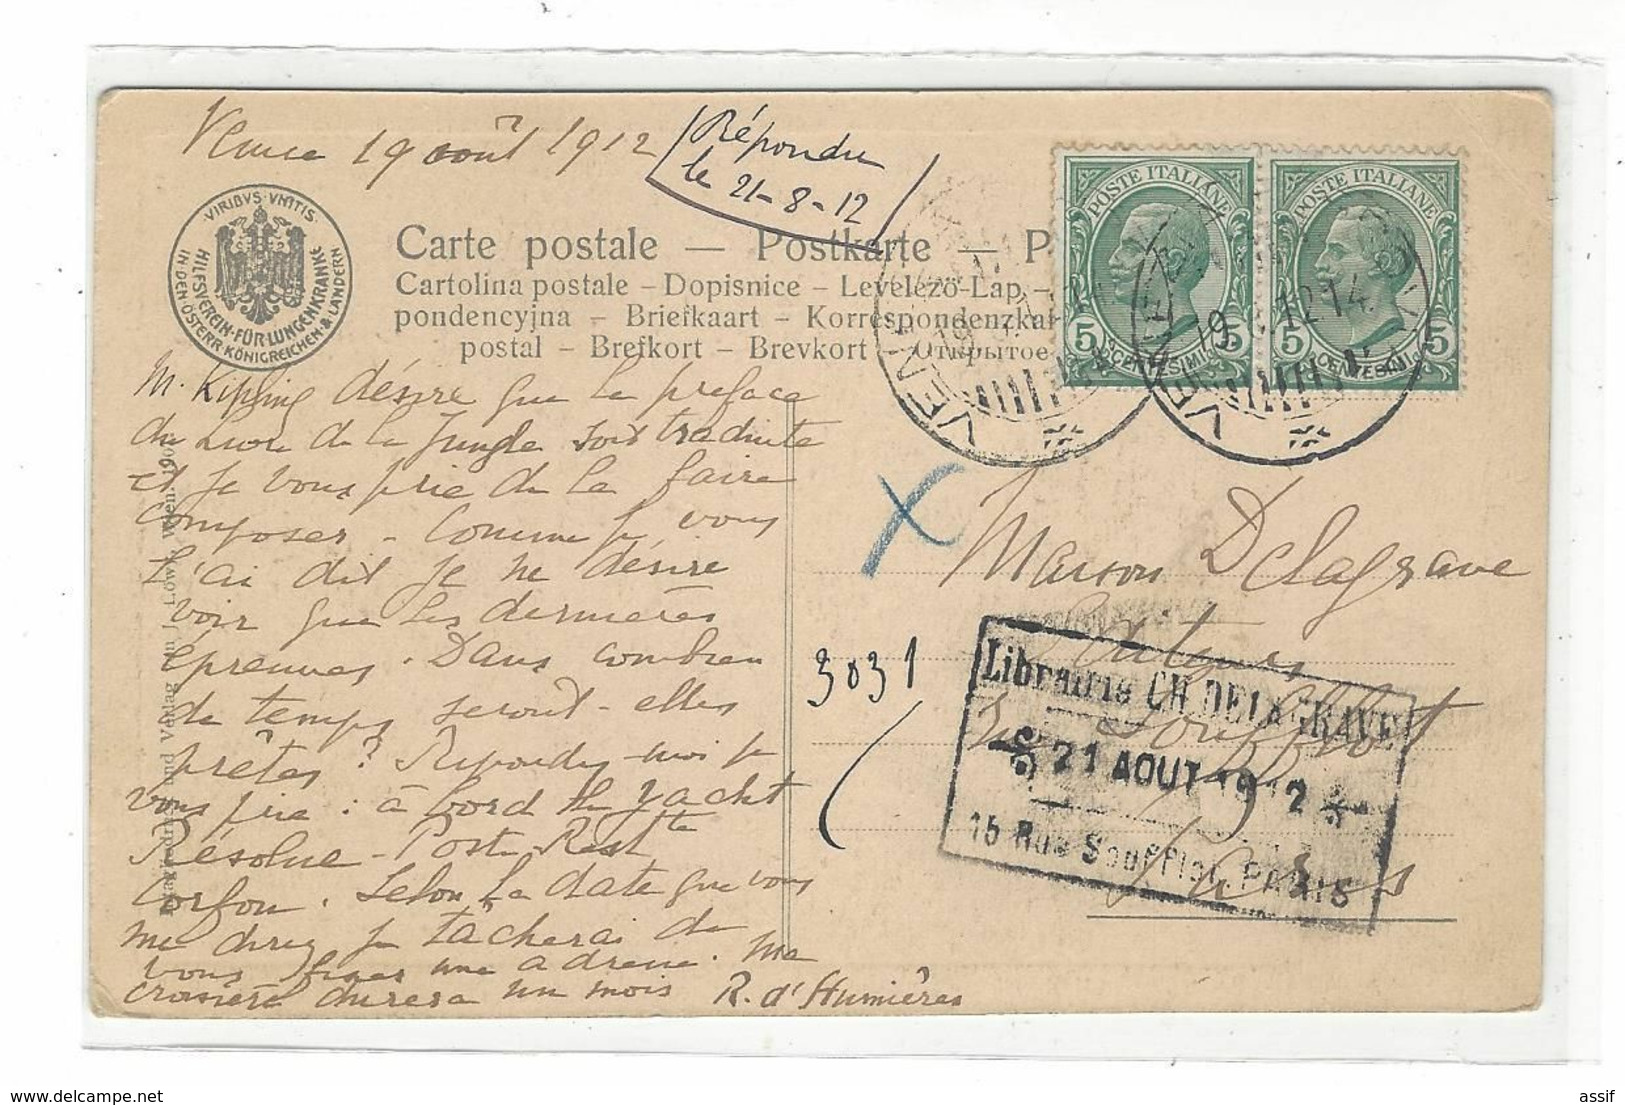 Venise 19 août 1912
Répondu
le 21-8-12
VIRIBVS·VNITIS
HILFSVEREIN·FÜR·LUNGENKRANKE
IN·DEN·ÖSTERR.·KÖNIGREICHEN·&·LÄNDERN
Carte postale — Postkarte — P
Cartolina postale – Dopisnice – Levelező-Lap –
pondencyjna – Briefkaart – Korrespondenzkar
postal – Brefkort – Brevkort – Открытое
POSTE ITALIANE
5 CENTESIMI 5
POSTE ITALIANE
5 CENTESIMI 5
VENEZIA
19 12 14
M. Kipling désire que la preface
du Livre de la Jungle soit traduite
et je vous prie de la faire
composer – Comme je vous
l'ai dit je ne désire
voir que les dernières
épreuves. Dans combien
de temps seront-elles
prêtes ? Repondez-moi je
vous prie : à bord du yacht
Résolue – Poste Restte
Corfou. Selon la date que vous
me direz je tâcherai de
vous fixer une adresse. Ma
croisière durera un mois R. d'Humières
und Verlag von J. Löwy, Wien.
Maison Delagrave
Editeurs
Rue Soufflot
Paris
3031
Librairie CH. DELAGRAVE
21 AOUT 1912
15 Rue Soufflot, PARIS
Delcampe.net
assif